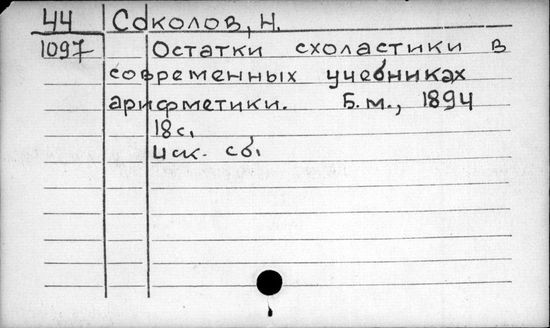 44 Соколов, Н.
1097 Остатки схоластики в
современных учебниках
арифметики. Б.м., 1894
18с.
Иск. сб.